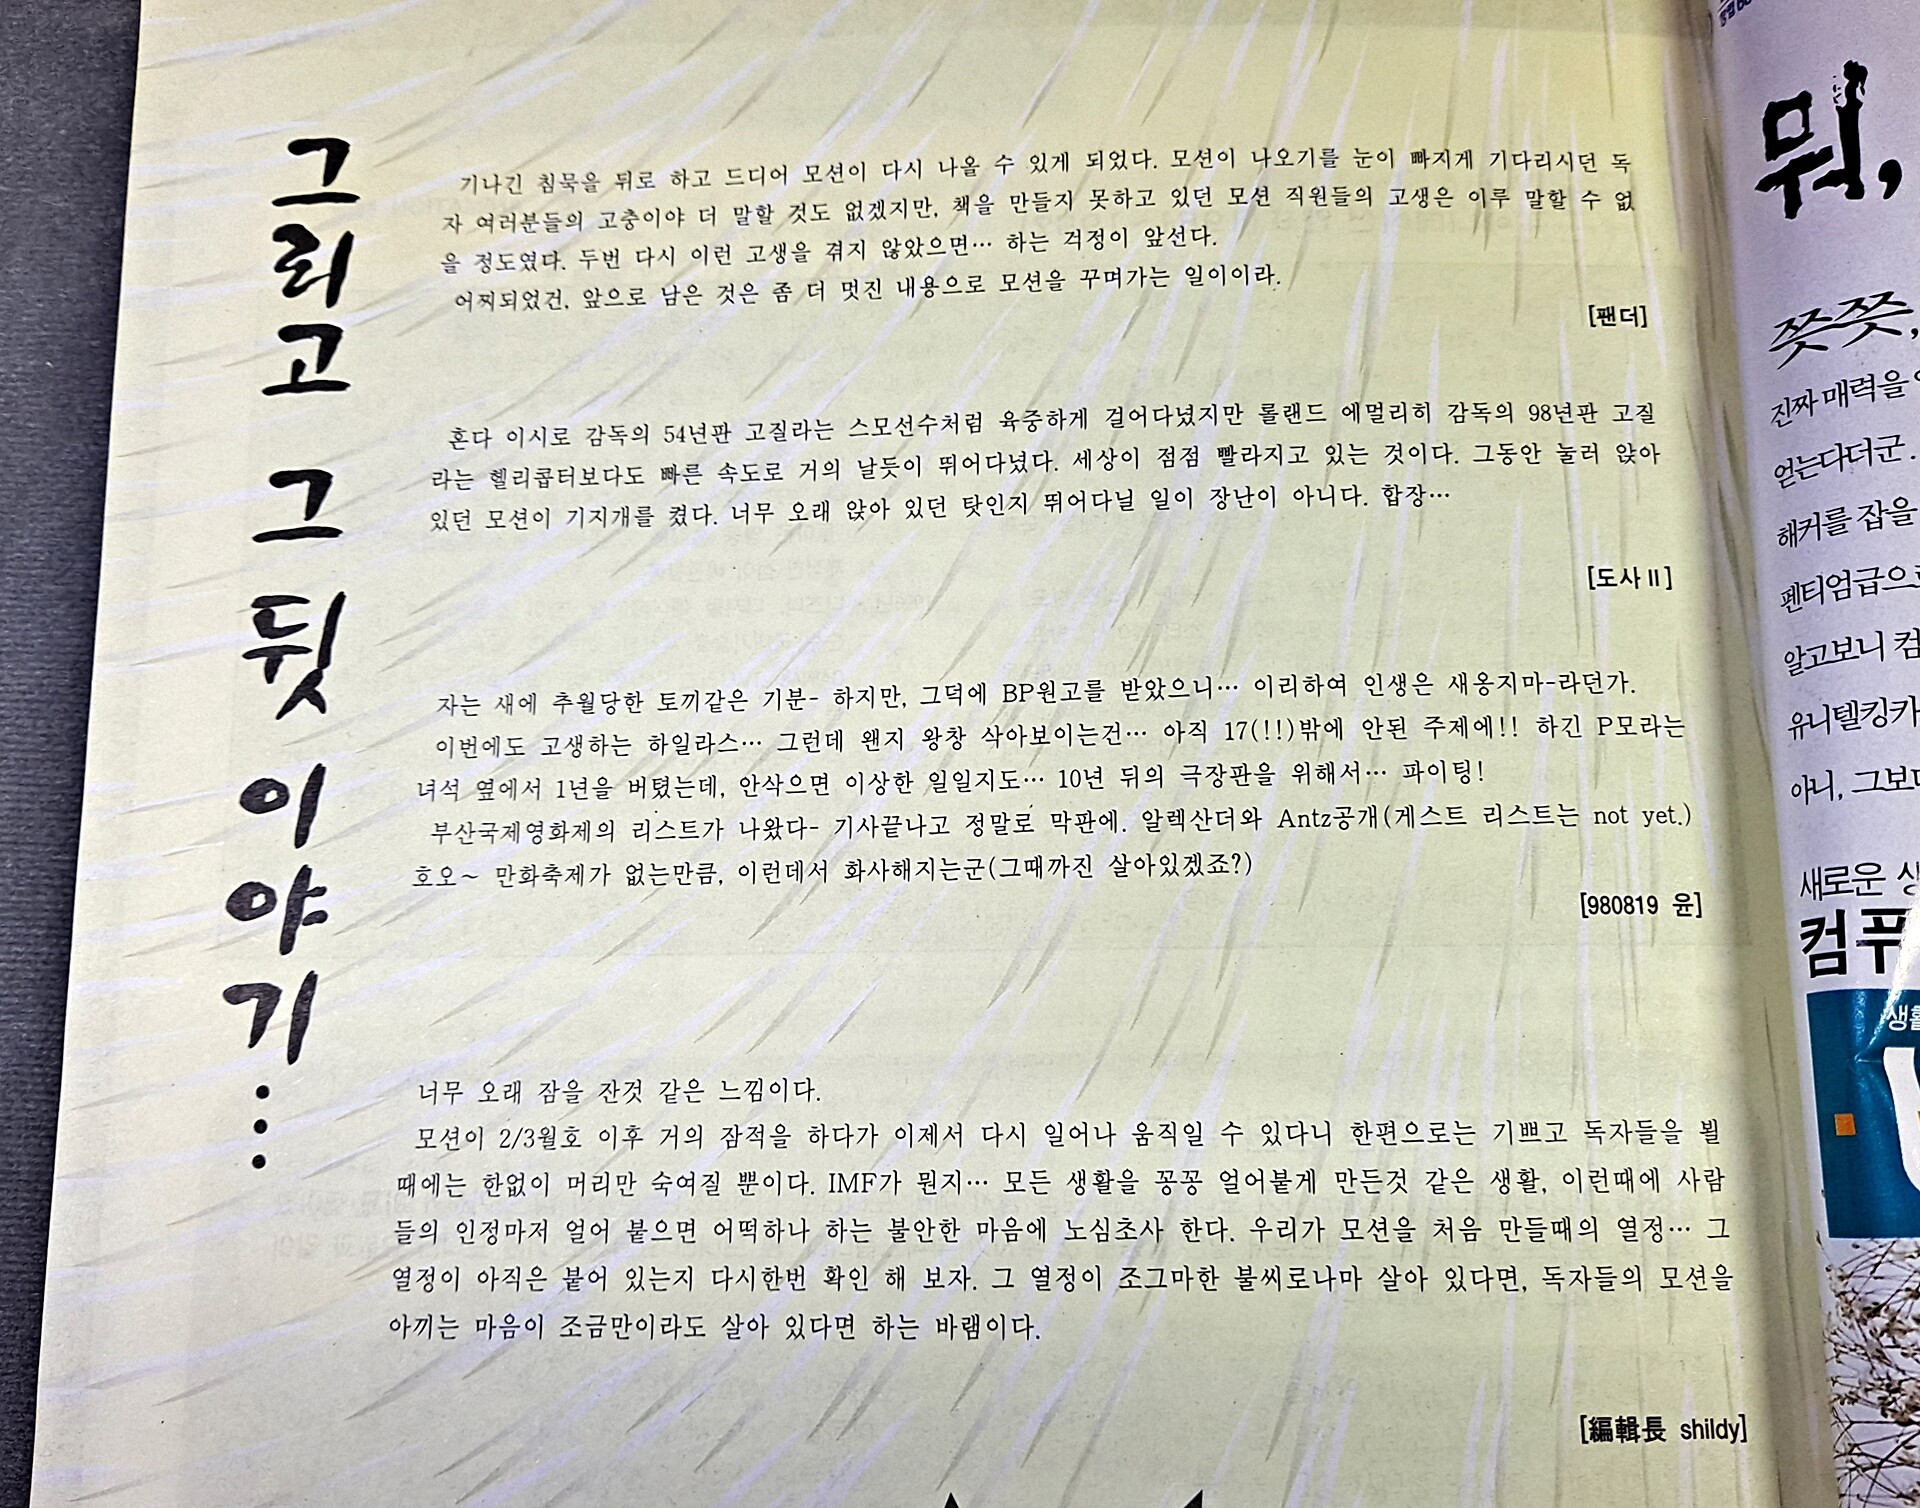 그리고 그 뒷 이야기…
기나긴 침묵을 뒤로 하고 드디어 모션이 다시 나올 수 있게 되었다. 모션이 나오기를 눈이 빠지게 기다리시던 독
자 여러분들의 고충이야 더 말할 것도 없겠지만, 책을 만들지 못하고 있던 모션 직원들의 고생은 이루 말할 수 없
을 정도였다. 두번 다시 이런 고생을 겪지 않았으면… 하는 걱정이 앞선다.
어찌되었건, 앞으로 남은 것은 좀 더 멋진 내용으로 모션을 꾸며가는 일이이라.
[팬더]
혼다 이시로 감독의 54년판 고질라는 스모선수처럼 육중하게 걸어다녔지만 롤랜드 에멀리히 감독의 98년판 고질
라는 헬리콥터보다도 빠른 속도로 거의 날듯이 뛰어다녔다. 세상이 점점 빨라지고 있는 것이다. 그동안 눌러 앉아
있던 모션이 기지개를 켰다. 너무 오래 앉아 있던 탓인지 뛰어다닐 일이 장난이 아니다. 합장…
[도사Ⅱ]
자는 새에 추월당한 토끼같은 기분- 하지만, 그덕에 BP원고를 받았으니… 이리하여 인생은 새옹지마-라던가.
이번에도 고생하는 하일라스… 그런데 왠지 왕창 삭아보이는건… 아직 17(!!)밖에 안된 주제에!! 하긴 P모라는
녀석 옆에서 1년을 버텼는데, 안삭으면 이상한 일일지도… 10년 뒤의 극장판을 위해서… 파이팅!
부산국제영화제의 리스트가 나왔다- 기사끝나고 정말로 막판에. 알렉산더와 Antz공개(게스트 리스트는 not yet.)
호오~ 만화축제가 없는만큼, 이런데서 화사해지는군(그때까진 살아있겠죠?)
[980819 윤]
너무 오래 잠을 잔것 같은 느낌이다.
모션이 2/3월호 이후 거의 잠적을 하다가 이제서 다시 일어나 움직일 수 있다니 한편으로는 기쁘고 독자들을 뵐
때에는 한없이 머리만 숙여질 뿐이다. IMF가 뭔지… 모든 생활을 꽁꽁 얼어붙게 만든것 같은 생활, 이런때에 사람
들의 인정마저 얼어 붙으면 어떡하나 하는 불안한 마음에 노심초사 한다. 우리가 모션을 처음 만들때의 열정… 그
열정이 아직은 붙어 있는지 다시한번 확인 해 보자. 그 열정이 조그마한 불씨로나마 살아 있다면, 독자들의 모션을
아끼는 마음이 조금만이라도 살아 있다면 하는 바램이다.
[編輯長 shildy]
뭐,
쯧쯧,
진짜 매력을
얻는다더군.
해커를 잡을
펜티엄급으로
알고보니 컴
유니텔킹카
아니, 그보다
새로운
컴퓨